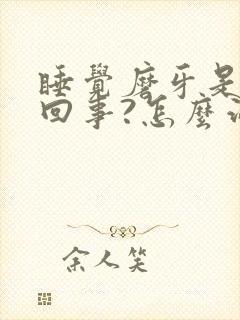 睡覺磨牙是
回事?怎麼
余人笑